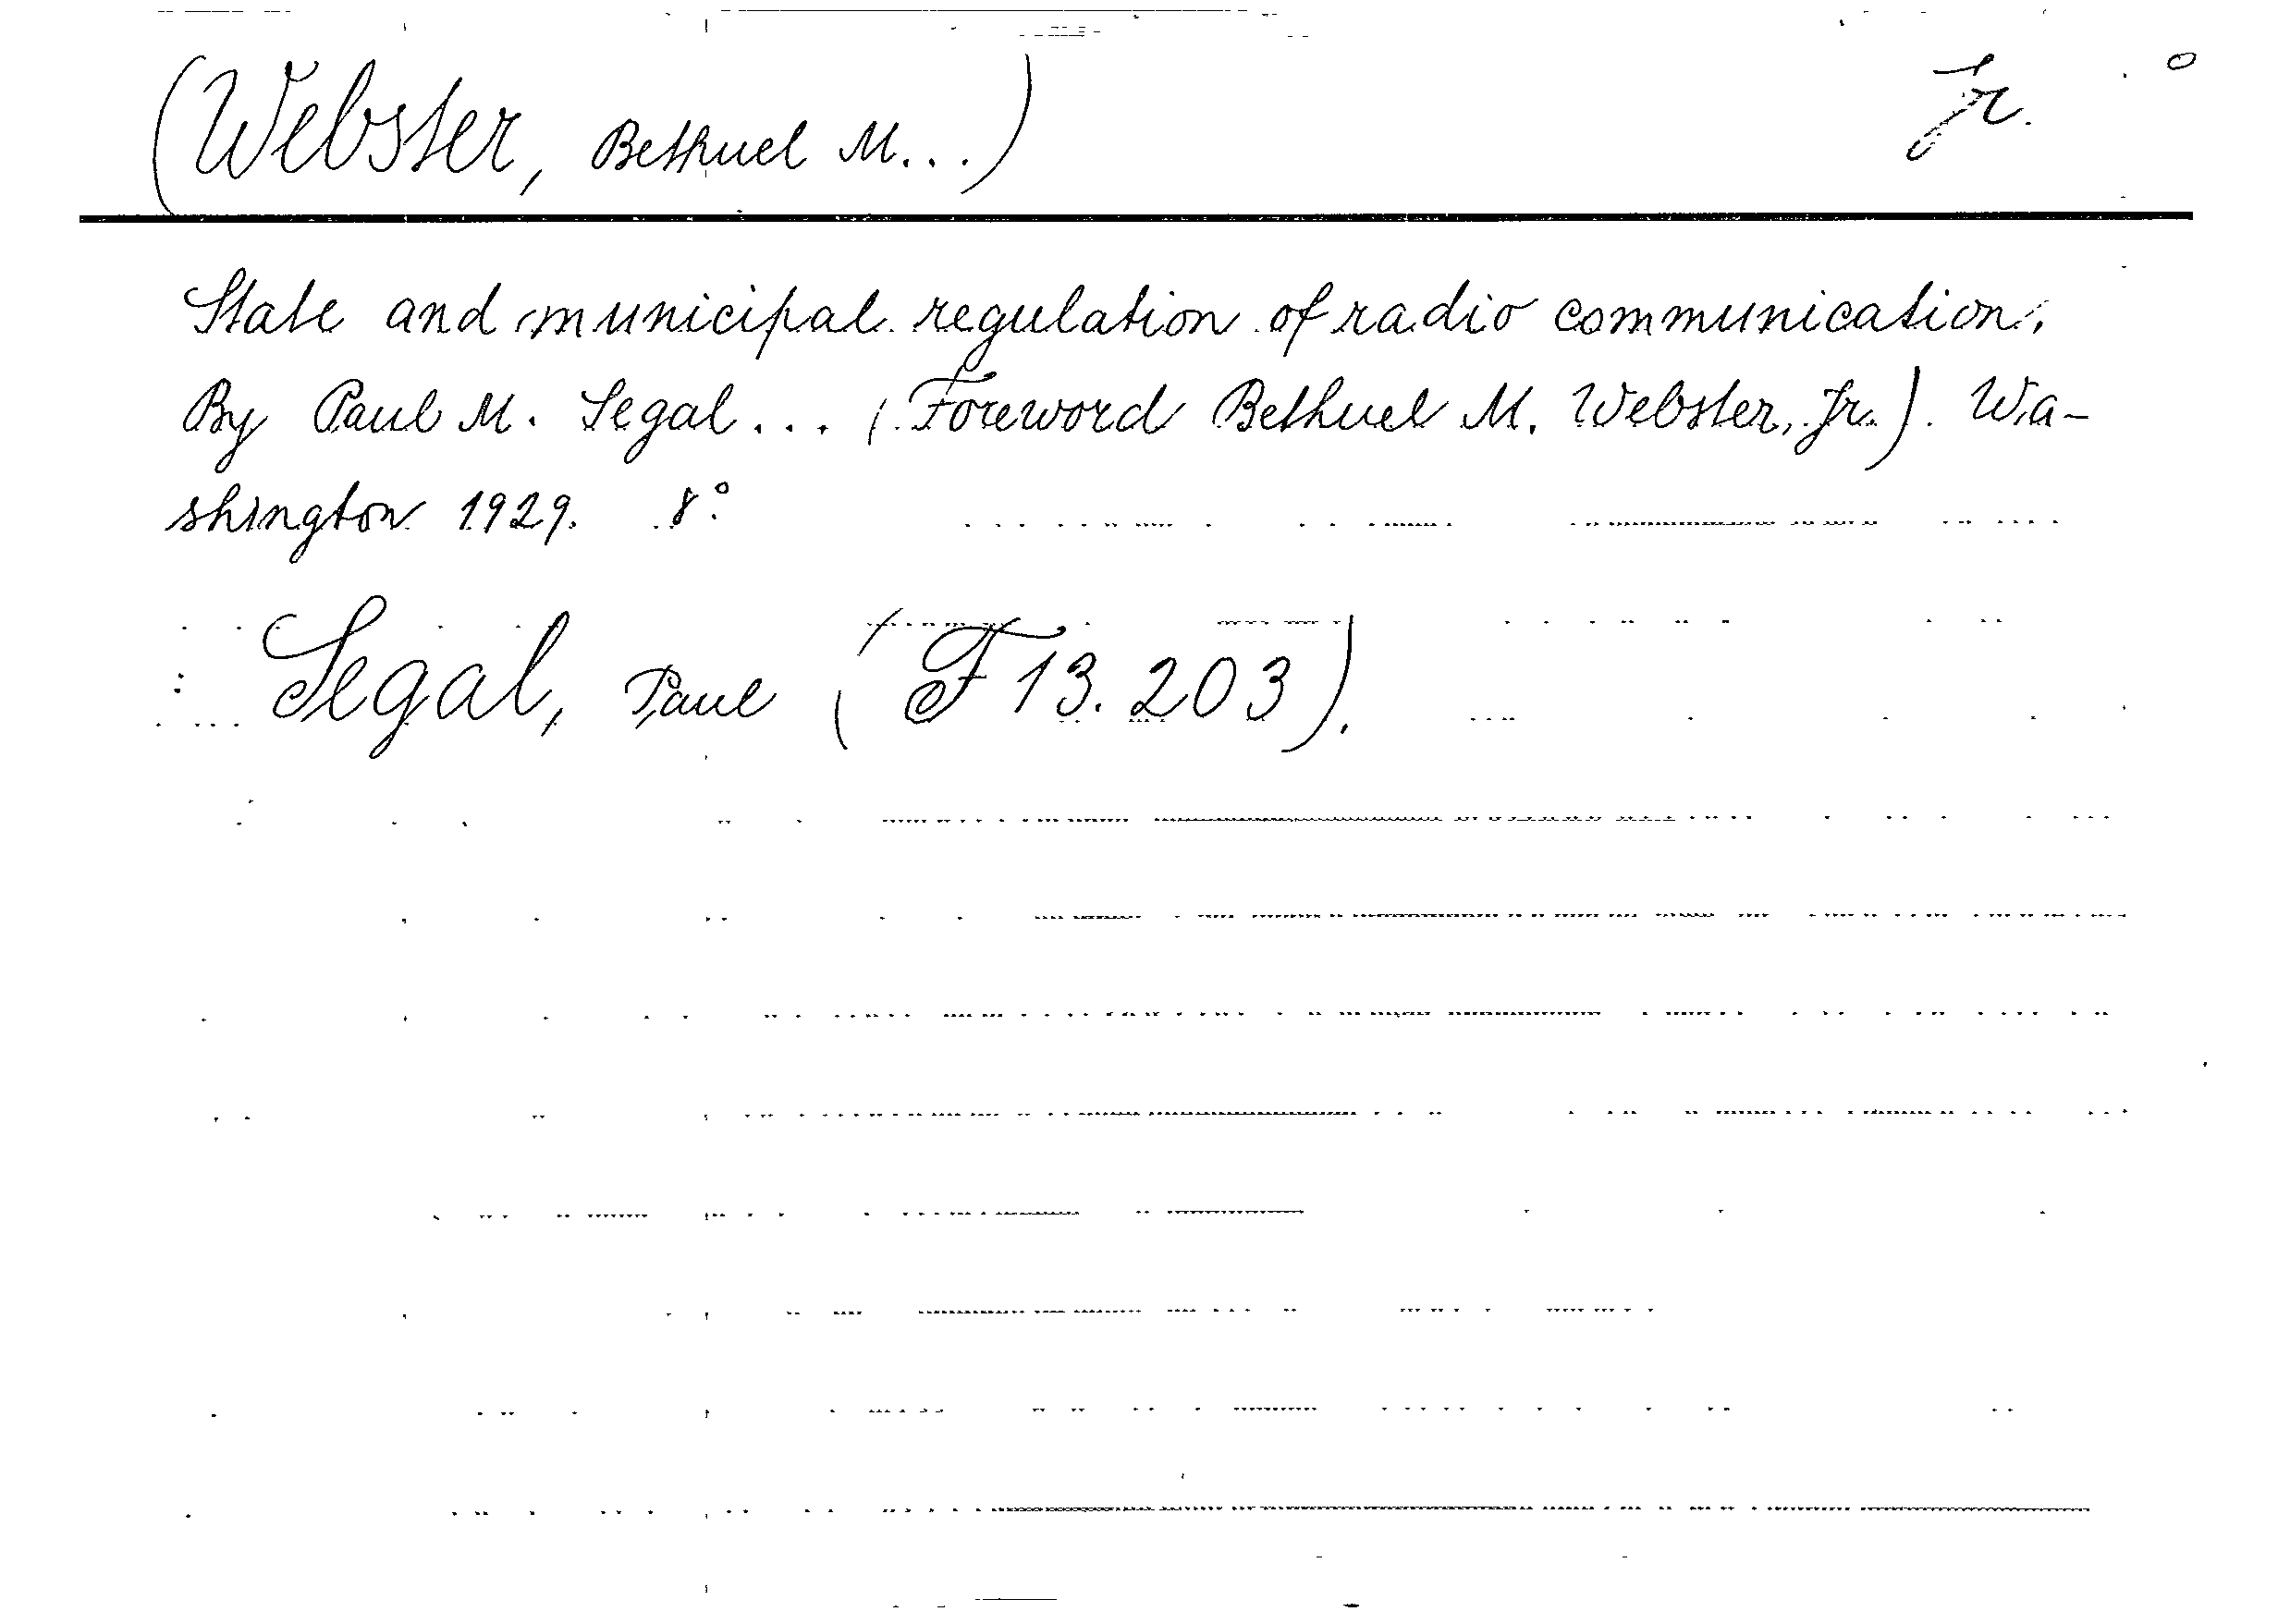 (Webster, Bethuel M...) Jr.
State and municipal regulation of radio communication.
By Paul M. Segal... (Foreword Bethuel M. Webster, Jr.). Wa-
shington 1929. 8°.
Segal, Paul (F 13.203).